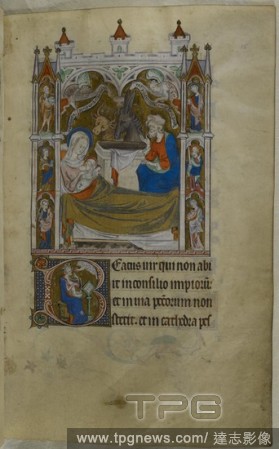 Beatus uir qui non abi
it in consilio impiorū
et in uia pctorum non
stetit. et in cathedra pes
TPG
www.tpgnews.com / 達志影像